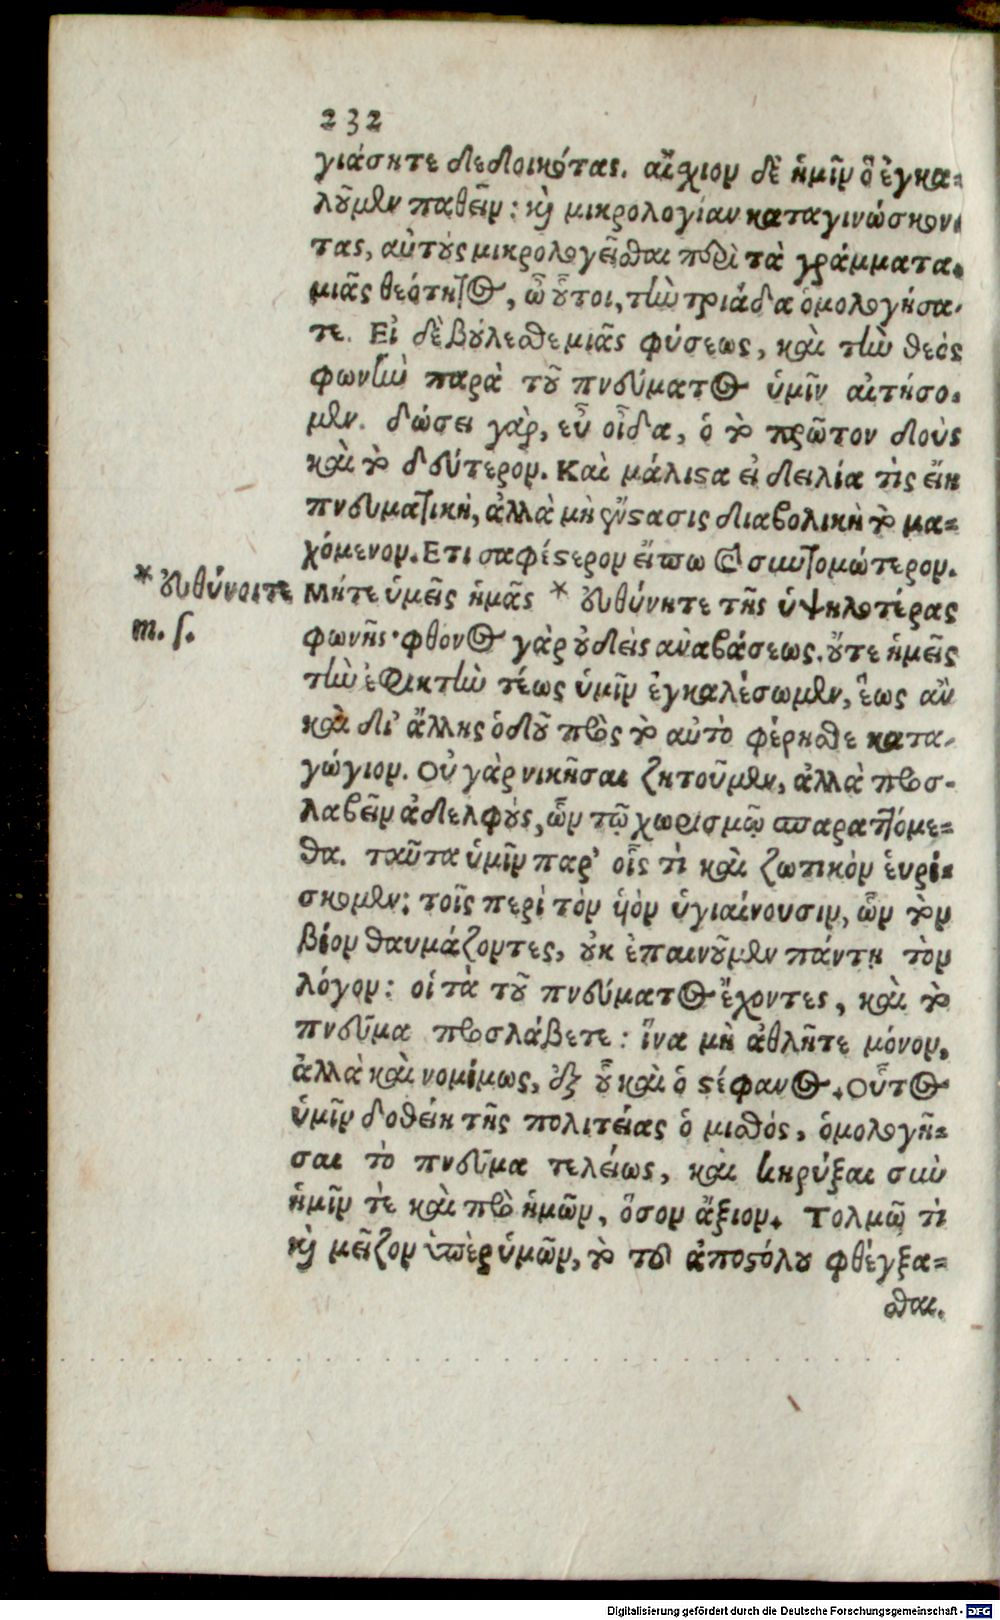 232
γιάσητε δεδοικότας. αἴχιον δὲ ἡμῖν ὃ ἐγκα-
λοῦμεν παθεῖν: καὶ μικρολογίαν καταγινώσκον-
τας, αὐτοὺς μικρολογεῖσθαι περὶ τὰ γράμματα.
μιᾶς θεότητος, ὦ οὗτοι, τὴν τριάδα ὁμολογήσα-
τε. Εἰ δὲ βούλεσθε μιᾶς φύσεως, καὶ τὴν θεὸς
φωνὴν παρὰ τοῦ πνεύματος ὑμῖν αἰτήσο-
μεν. δώσει γὰρ, εὖ οἶδα, ὁ τὸ πρῶτον δοὺς
καὶ τὸ δεύτερον. Καὶ μάλιστα εἰ δειλία τὶς εἴη
πνευματικὴ, ἀλλὰ μὴ ἔνστασις διαβολικὴ τὸ μα-
χόμενον. Ετι σαφέστερον εἴπω καὶ συντομώτερον.
Μήτε ὑμεῖς ἡμᾶς * εὐθύνητε τῆς ὑψηλοτέρας
φωνῆς· φθονος γὰρ οὐδεὶς ἀναβάσεως. οὔτε ἡμεῖς
τὴν ἐφικτὴν τέως ὑμῖν ἐγκαλέσωμεν, ἕως ἂν
καὶ δι' ἄλλης ὁδοῦ πρὸς τὸ αὐτὸ φέρησθε κατα-
γώγιον. Οὐ γὰρ νικῆσαι ζητοῦμεν, ἀλλὰ προσ-
λαβεῖν ἀδελφούς, ὧν τῷ χωρισμῷ σπαραττόμε-
θα. ταῦτα ὑμῖν παρ' οἷς τὶ καὶ ζωτικὸν εὑρί-
σκομεν: τοῖς περὶ τὸν υἱὸν ὑγιαίνουσιν, ὧν τὸν
βίον θαυμάζοντες, οὐκ ἐπαινοῦμεν πάντη τὸν
λόγον: οἱ τὰ τοῦ πνεύματος ἔχοντες, καὶ τὸ
πνεῦμα προσλάβετε: ἵνα μὴ ἀθλῆτε μόνον,
ἀλλὰ καὶ νομίμως, ἐξ οὗ καὶ ὁ στέφανος. Οὗτος
ὑμῖν δοθείη τῆς πολιτείας ὁ μισθός, ὁμολογῆ-
σαι τὸ πνεῦμα τελείως, καὶ κηρύξαι σὺν
ἡμῖν τὲ καὶ πρὸ ἡμῶν, ὅσον ἄξιον. Τολμῶ τὶ
καὶ μεῖζον ὑπὲρ ὑμῶν, τὸ τοῦ ἀποστόλου φθέγξα-
σθαι.
* εὐθύνοιτε
m. s.
Digitalisierung gefördert durch die Deutsche Forschungsgemeinschaft - DFG